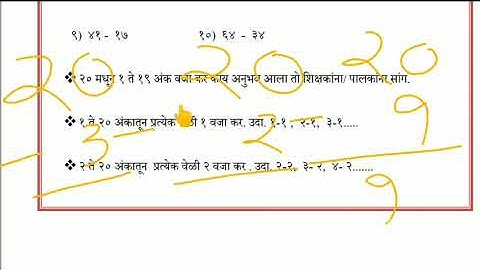 ९) ४१ - १७ १०) ६४ - ३४
२० 20 20
❖ २० मधून १ ते १९ अंक वजा कर काय अनुभव आला तो शिक्षकांना/ पालकांना सांग.
❖ १ ते २० अंकातून प्रत्येक वेळी १ वजा कर. उदा. १-१ , २-१, ३-१.....
- 3 - 2 - 9
❖ २ ते २० अंकातून प्रत्येक वेळी २ वजा कर . उदा. २-२, ३- २, ४- २.......
9